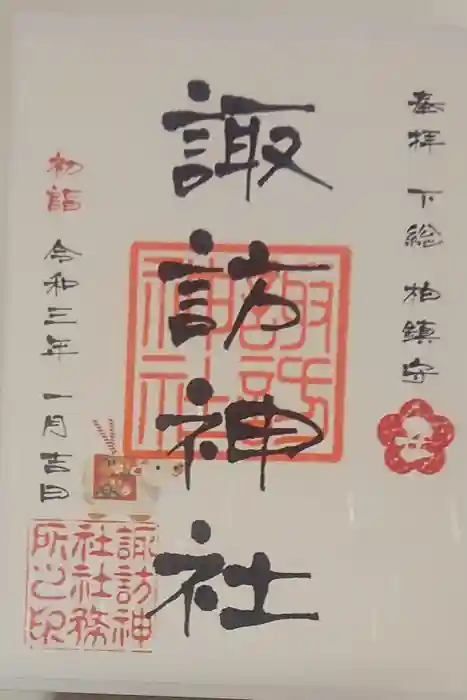 奉拝 下総 柏鎮守
諏訪神社
諏訪神社
初詣 令和三年 一月吉日
諏訪神
社社務
所之印